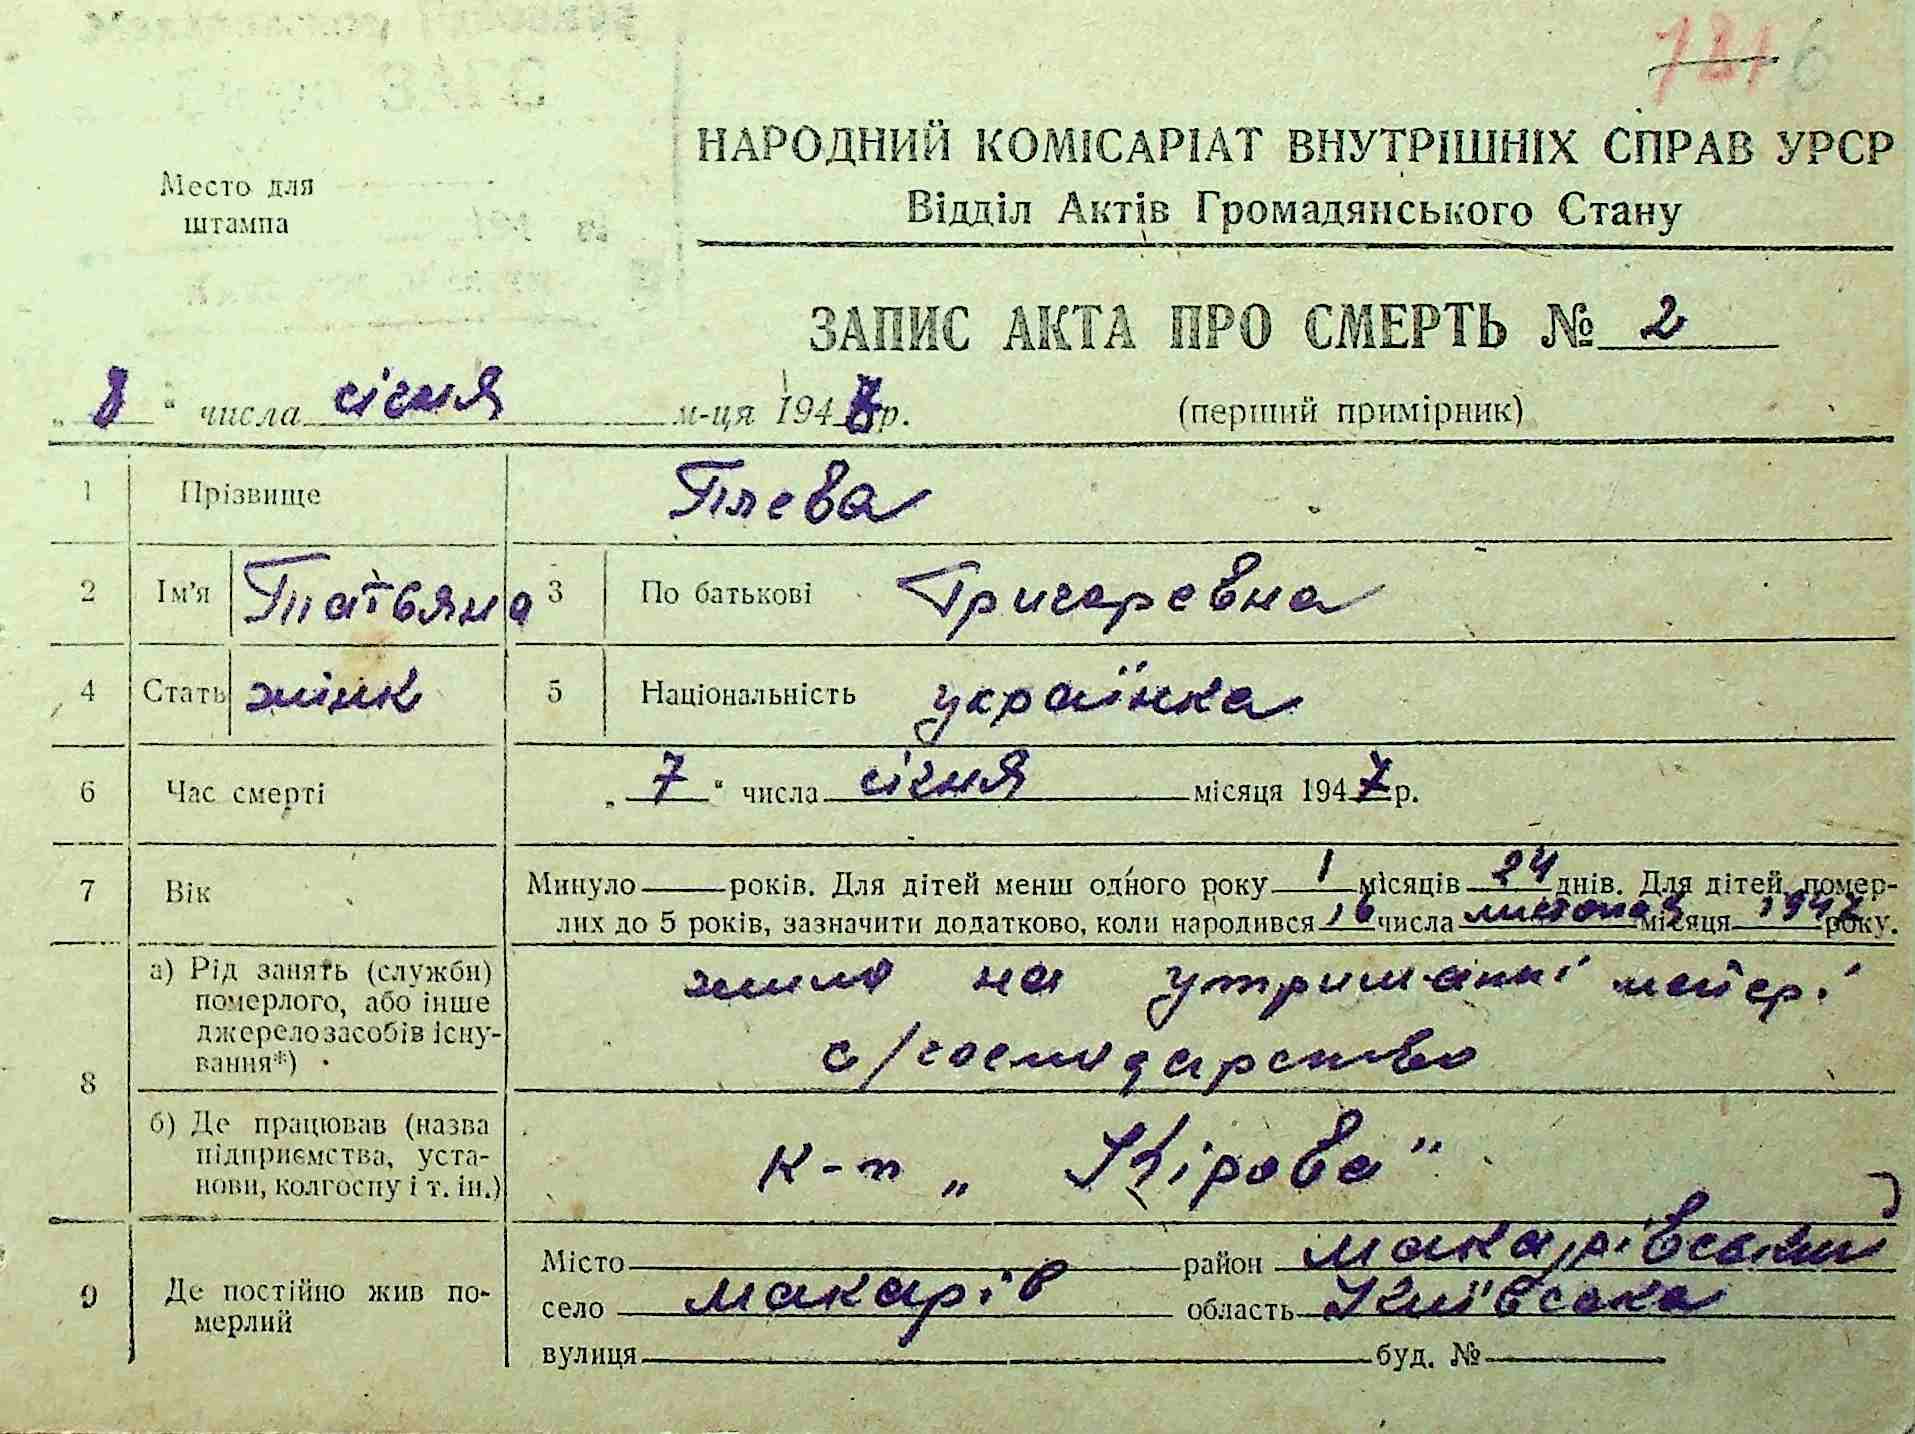 6
НАРОДНИЙ КОМІСАРІАТ ВНУТРІШНІХ СПРАВ УРСР
Відділ Актів Громадянського Стану
Место для
штампа
ЗАПИС АКТА ПРО СМЕРТЬ № 2
„ 8 “ числа січня м-ця 1947 р. (перший примірник)
1 Прізвище Плева
2 Ім'я Татьяна 3 По батькові Григоревна
4 Стать жінк 5 Національність українка
6 Час смерті „ 7 “ числа січня місяця 1947 р.
7 Вік Минуло — років. Для дітей менш одного року 1 місяців 24 днів. Для дітей, помер-
лих до 5 років, зазначити додатково, коли народився 16 числа листопад місяця року.
8 а) Рід занять (служби)
померлого, або інше
джерело засобів існу-
вання*)
жила на утриманні матері
с/господарство
б) Де працював (назва
підприємства, уста-
нови, колгоспу і т. ін.)
к-п „ Кірова "
9 Де постійно жив по-
мерлий
Місто район Макарівський
село Макарів область Київська
вулиця буд. №